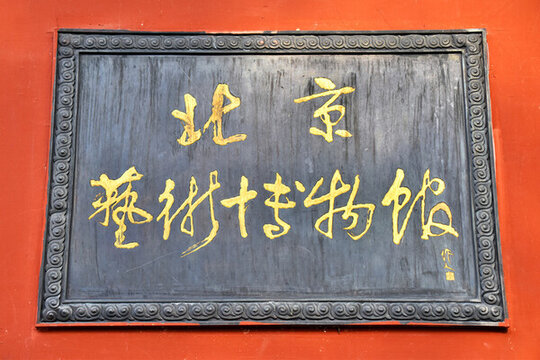 北京
藝術博物館